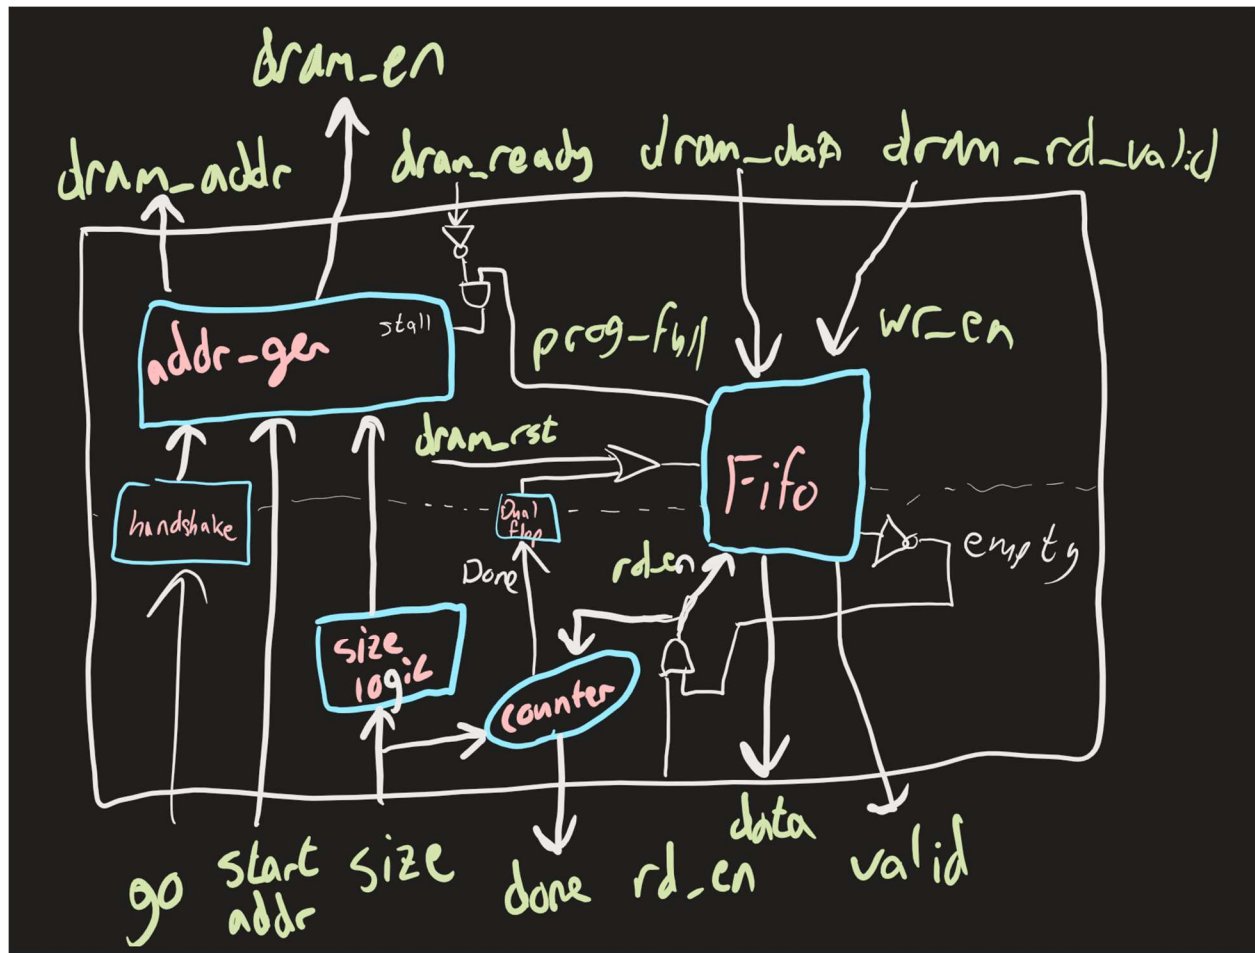 dram_en
dram_addr
dram_ready
dram_data
dram_rd_valid
stall
addr-gen
prog-full
wr_en
dram_rst
Fifo
handshake
Dual
flop
Done
rd_en
empty
size
logic
counter
go
start
addr
size
done
rd_en
data
valid